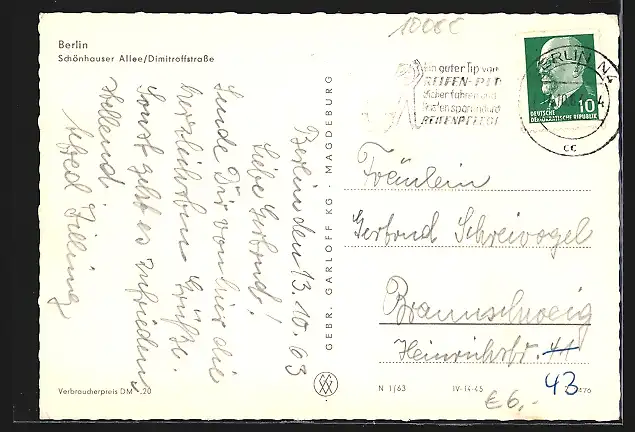 10086
Berlin
Schönhauser Allee/Dimitroffstraße
Berlin den 13.10.63
Liebe Gertrud!
Sende Dir von hier die
herzlichsten Grüße.
Sonst geht es zufrieden
stellend
Alfred
GEBR. GARLOFF KG · MAGDEBURG
Ein guter Tip von
REIFEN-PIT
Sicher fahren und
Kosten sparen durch
REIFENPFLEGE
BERLIN N4
cc
10
DEUTSCHE
DEMOKRATISCHE REPUBLIK
Fräulein
Gertrud Schreivogel
Braunschweig
Heinrichstr. 41
43
Verbraucherpreis DM -,20
N 1/63 IV-14-45
€ 6,-